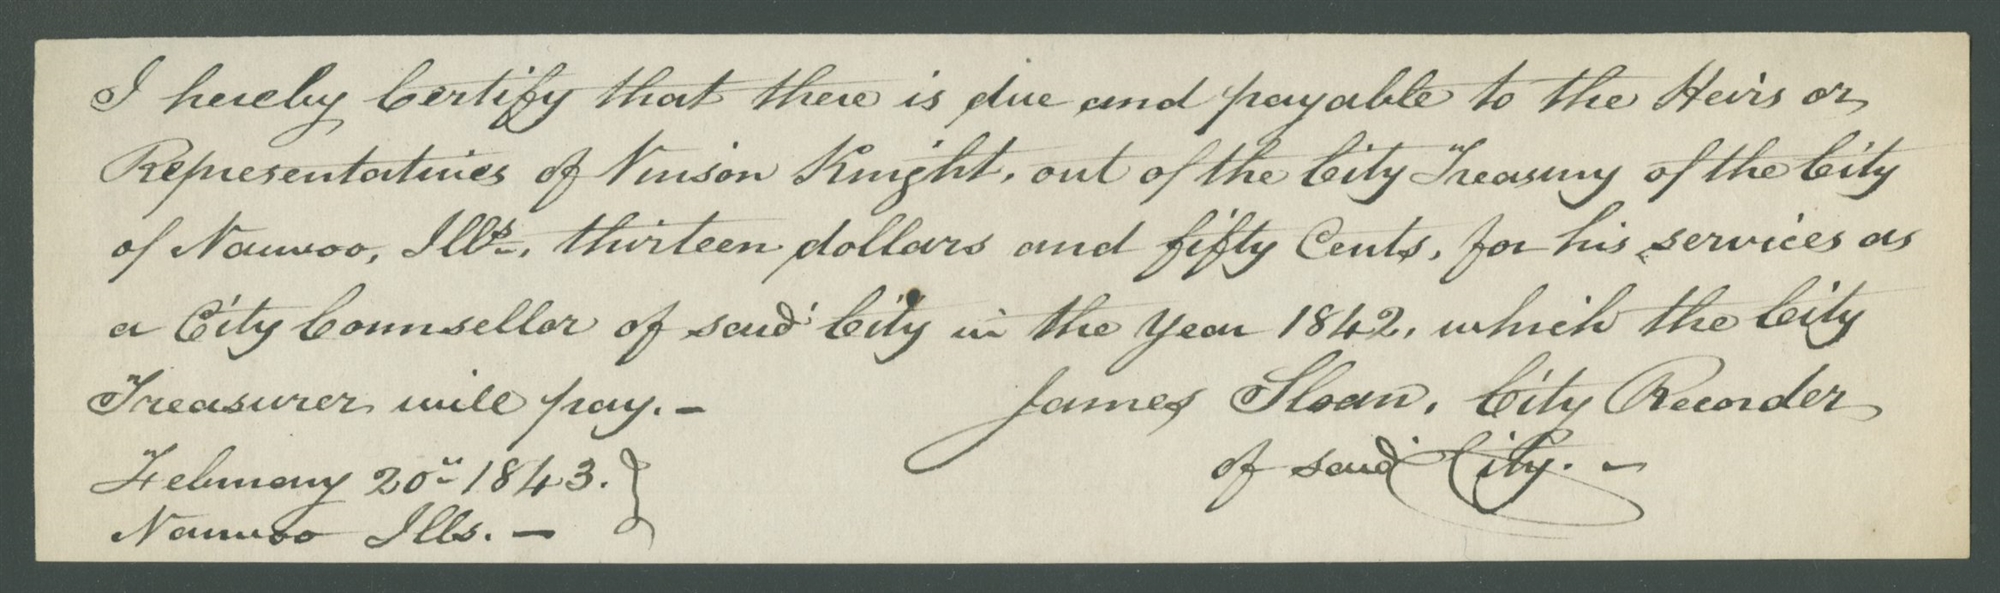 I hereby Certify that there is due and payable to the Heirs or
Representatives of Vinson Knight, out of the City Treasury of the City
of Nauvoo, Ills., thirteen dollars and fifty Cents, for his services as
a City Counsellor of said City in the Year 1842, which the City
Treasurer will pay.–
James Sloan, City Recorder
of said City.–
February 20" 1843.
Nauvoo Ills.–